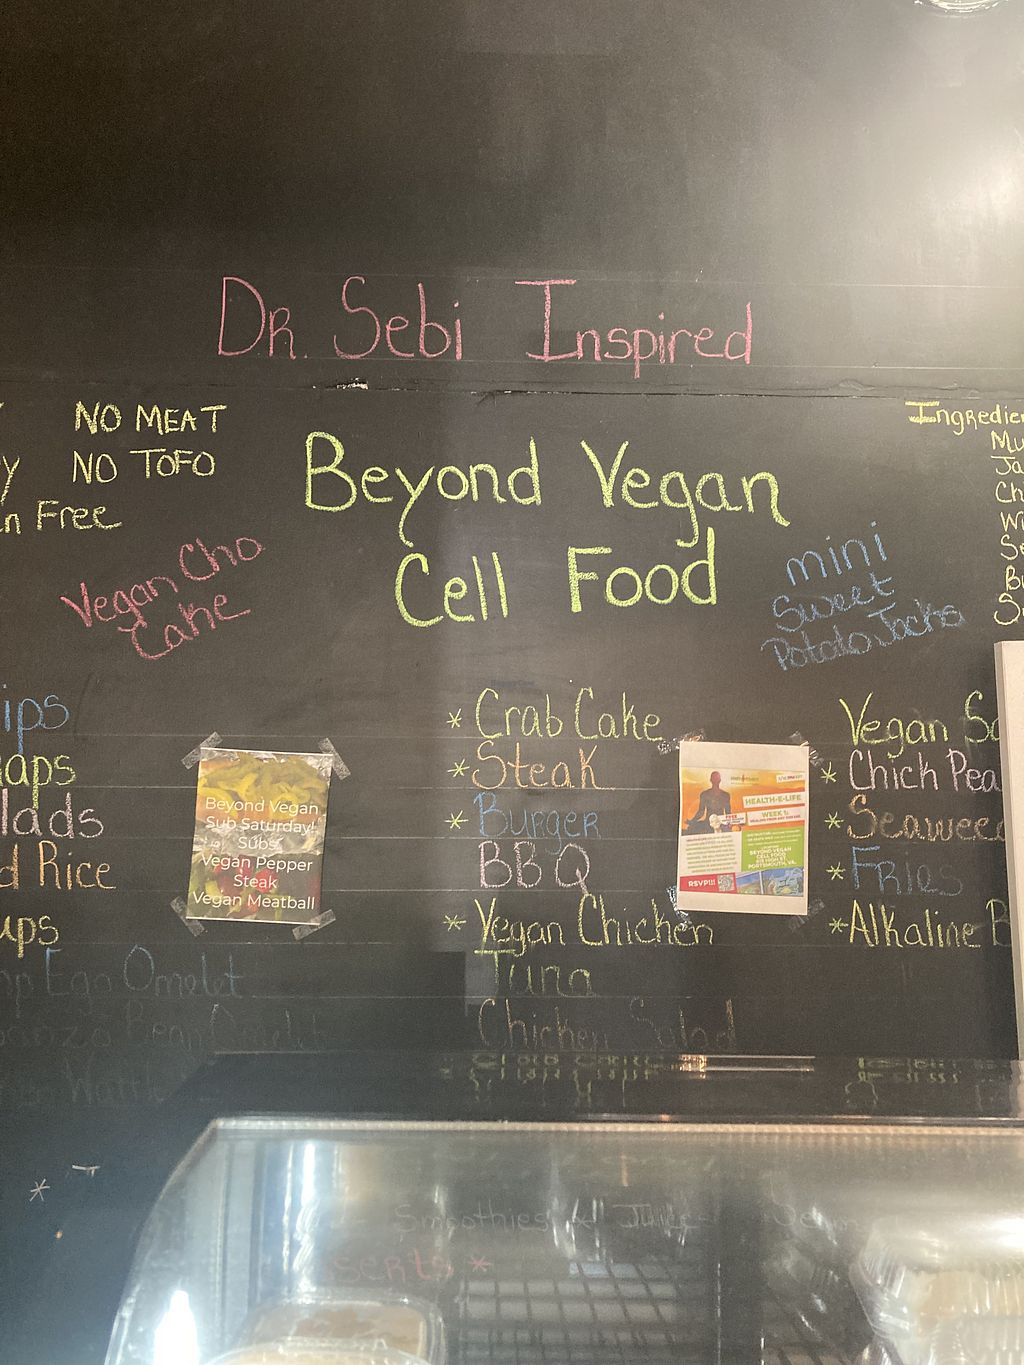 Dr. Sebi Inspired
NO MEAT
NO TOFO
Free
Beyond Vegan
Cell Food
Vegan Cho
Cake
mini
Sweet
Potato Jacks
Ingredien
Mu
Ja
Ch
Wi
Se
Bu
ips
aps
lads
d Rice
ups
Egg Omelet
Bean Omelet
Beyond Vegan
Sub Saturday!
Subs
Vegan Pepper
Steak
Vegan Meatball
* Crab Cake
* Steak
* Burger
BBQ
* Vegan Chicken
Tuna
Chicken Salad
HEALTH-E-LIFE
WEEK 1:
BEYOND VEGAN
CELL FOOD
PORTSMOUTH, VA.
RSVP!!!
Vegan So
* Chick Pea
* Seaweed
* Fries
* Alkaline B
Smoothies * Juice
serts *